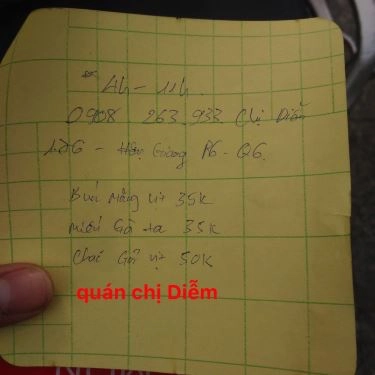 4h - 11h.
0908 263 933 Chị Diễm
126 - Hậu Giang P6 - Q6.
Bún Măng vịt 35K
miến Gà ta 35K
Cháo Gỏi vịt 50K
quán chị Diễm